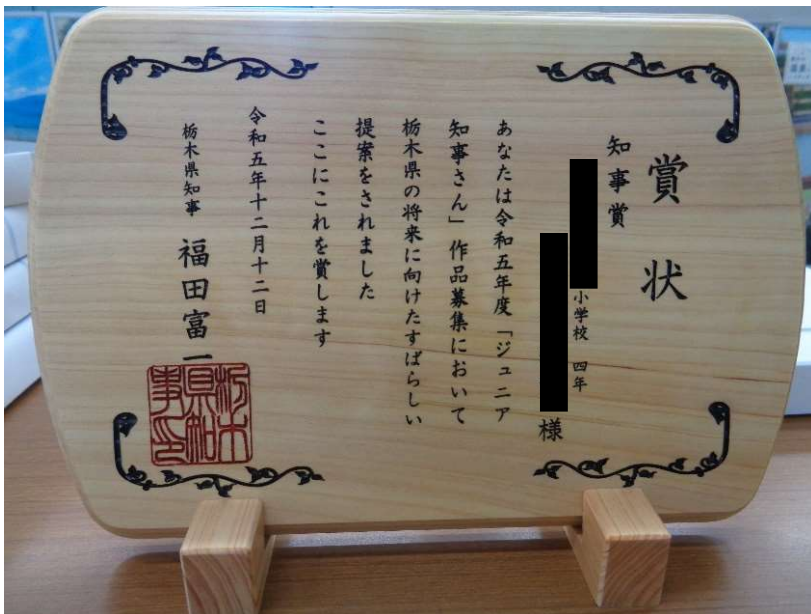 賞状
知事賞
小学校 四年
様
あなたは令和五年度「ジュニア
知事さん」作品募集において
栃木県の将来に向けたすばらしい
提案をされました
ここにこれを賞します
令和五年十二月十二日
栃木県知事 福田富一
栃木県知事印